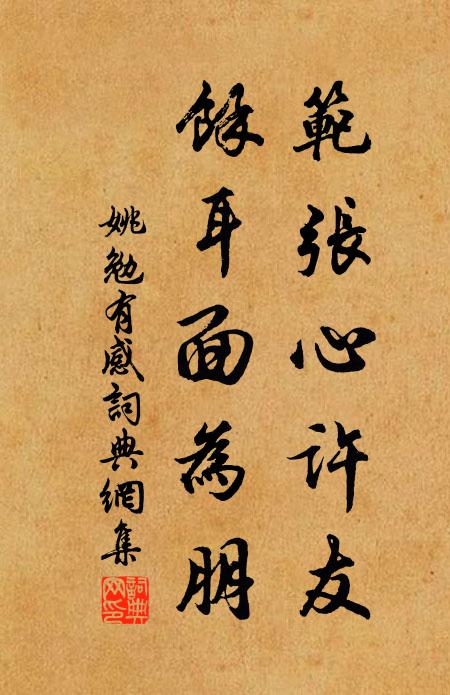 範張心許友
餘耳面為朋
姚勉有感詞典網集
詞典網印